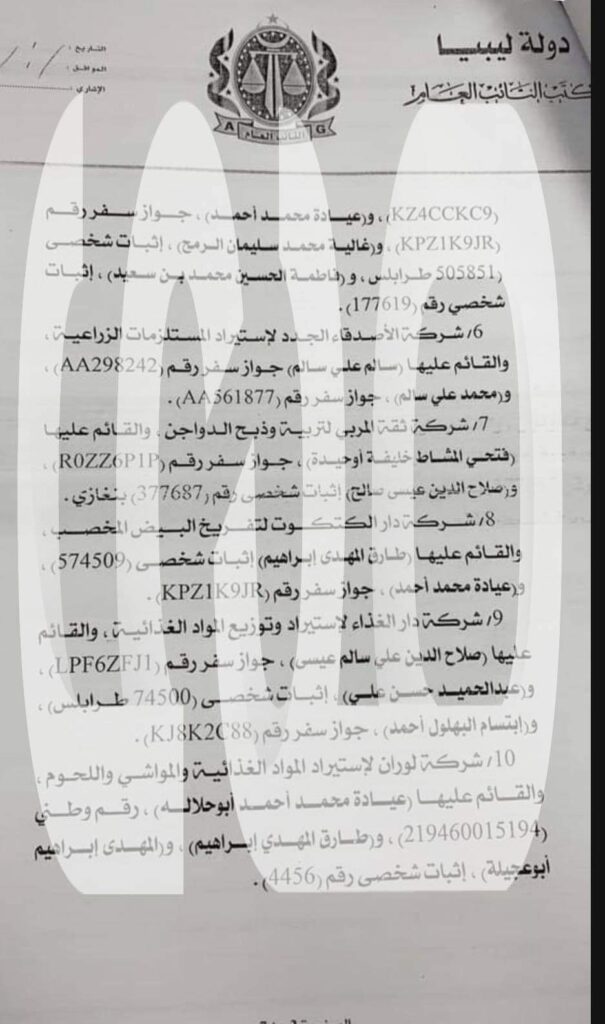 دولة ليبيا
مكتب النائب العام
التاريخ :
الموافق :
الإشاري :
A النائب العام G
(KZ4CCKC9) ، و(عيادة محمد أحمد) ، جواز سفر رقم
(KPZ1K9JR) ، و(غالية محمد سليمان الرمح) ، إثبات شخصي
(505851 طرابلس ، و(فاطمة الحسين محمد بن سعيد) ، إثبات
شخصي رقم (177619) .
6/ شركة الأصدقاء الجدد لإستيراد المستلزمات الزراعية ،
والقائم عليها (سالم علي سالم) جواز سفر رقم (AA298242) ،
و(محمد علي سالم) ، جواز سفر رقم (AA561877) .
7/ شركة ثقة المربي لتربية وذبح الدواجن ، والقائم عليها
(فتحي المشاط خليفة أوحيدة) ، جواز سفر رقم (R0ZZ6P1P) ،
و(صلاح الدين عيسى صالح) إثبات شخصي رقم (377687) بنغازي .
8/ شركة دار الكتكوت لتفريخ البيض المخصب ،
والقائم عليها (طارق المهدي إبراهيم) إثبات شخصي (574509) ،
و(عيادة محمد أحمد) ، جواز سفر رقم (KPZ1K9JR) .
9/ شركة دار الغذاء لإستيراد وتوزيع المواد الغذائية ، والقائم
عليها (صلاح الدين علي سالم عيسى) ، جواز سفر رقم (LPF6ZFJ1) ،
و(عبدالحميد حسن علي) ، إثبات شخصي (74500 طرابلس) ،
و(إبتسام البهلول أحمد) ، جواز سفر رقم (KJ8K2C88) .
10/ شركة لوران لإستيراد المواد الغذائية والمواشي واللحوم ،
والقائم عليها (عيادة محمد أحمد أبوحلاله) ، رقم وطني
(219460015194) ، و(طارق المهدي إبراهيم) ، و(المهدي إبراهيم
أبوعجيلة) ، إثبات شخصي رقم (4456) .